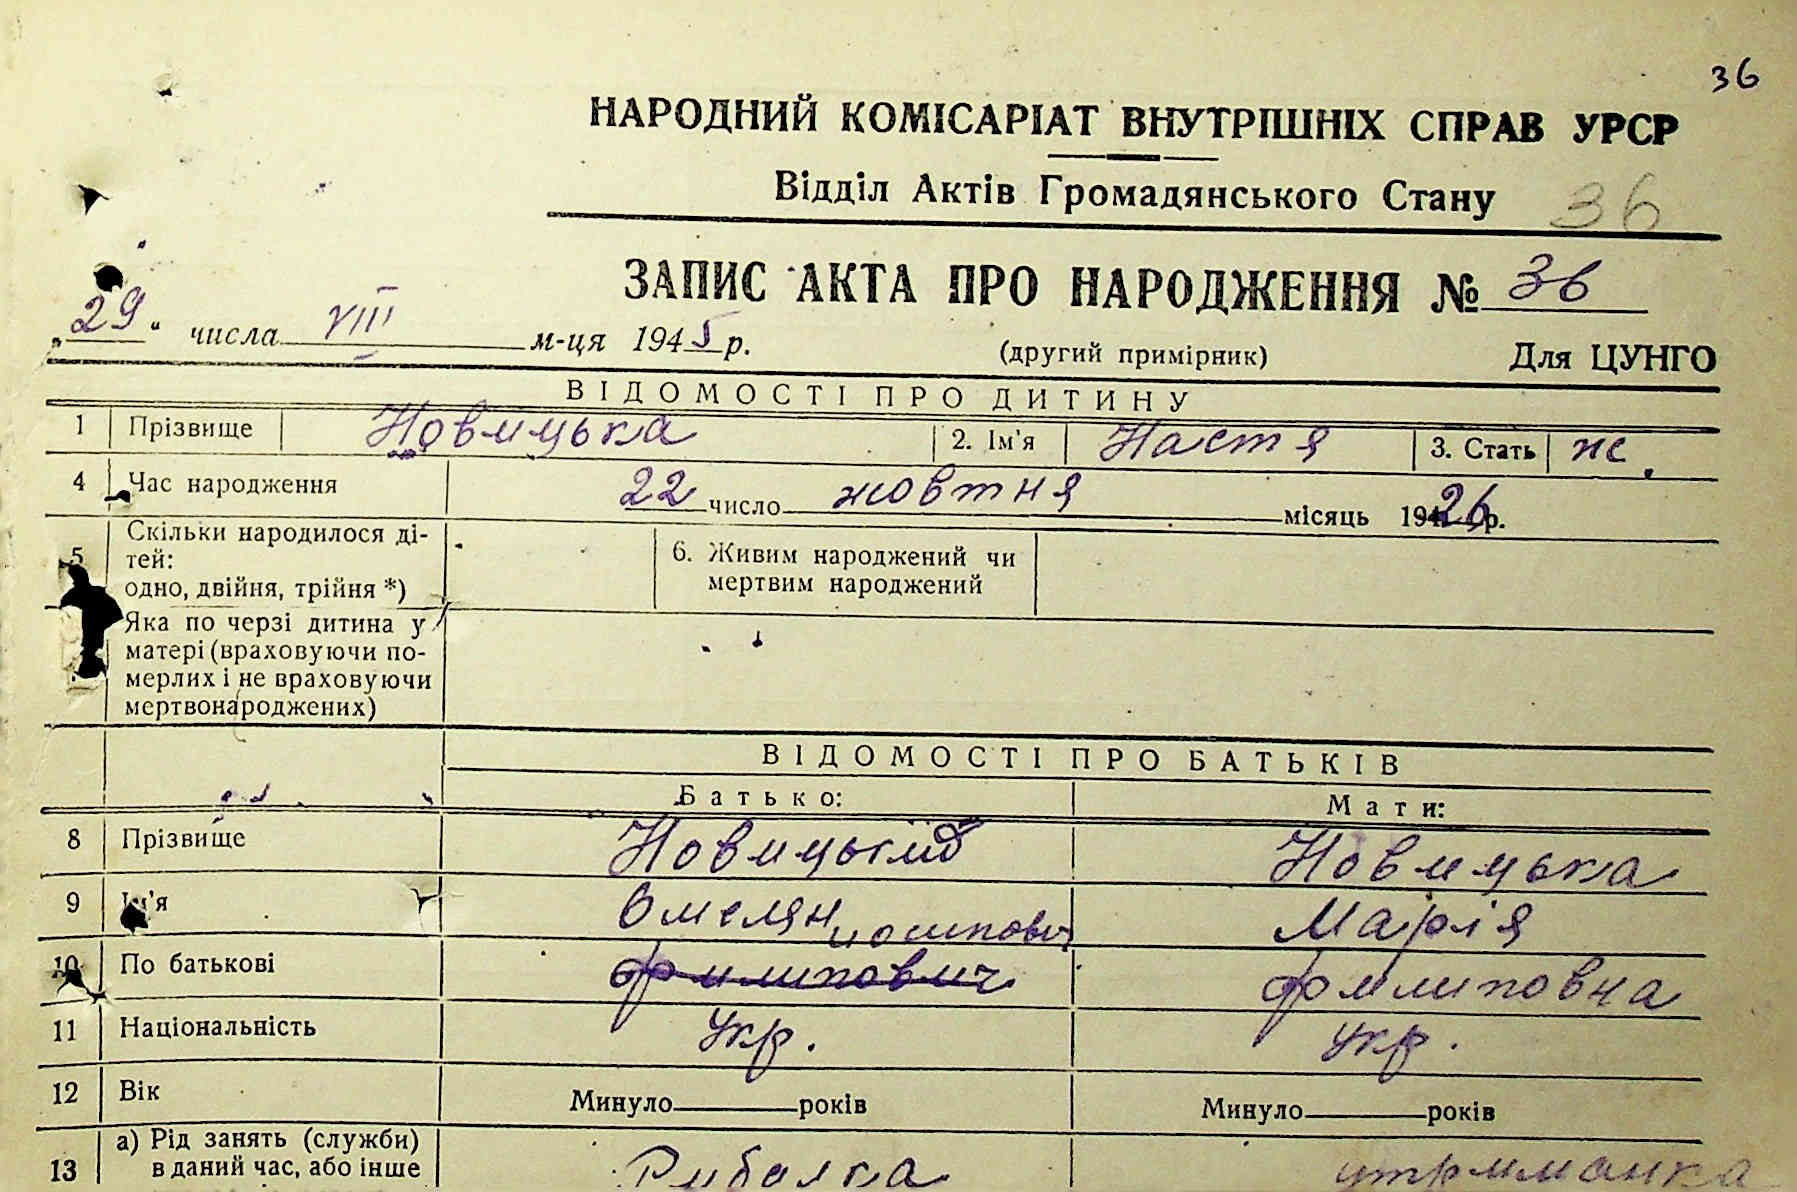 36
НАРОДНИЙ КОМІСАРІАТ ВНУТРІШНІХ СПРАВ УРСР
Відділ Актів Громадянського Стану 36
ЗАПИС АКТА ПРО НАРОДЖЕННЯ № 36
„29“ числа VIII м-ця 1945 р. (другий примірник) Для ЦУНГО
ВІДОМОСТІ ПРО ДИТИНУ
1 Прізвище Новицька 2. Ім'я Настя 3. Стать ж.
4 Час народження 22 число жовтня місяць 1926 р.
5 Скільки народилося ді-
тей:
одно, двійня, трійня *)
6. Живим народжений чи
мертвим народжений
Яка по черзі дитина у
матері (враховуючи по-
мерлих і не враховуючи
мертвонароджених)
ВІДОМОСТІ ПРО БАТЬКІВ
Батько: Мати:
8 Прізвище Новицький Новицька
9 Ім'я Омелян Марія
Йосипович
10 По батькові Филипович Филиповна
11 Національність Укр. Укр.
12 Вік Минуло років Минуло років
13 а) Рід занять (служби)
в даний час, або інше
Рибалка утриманка